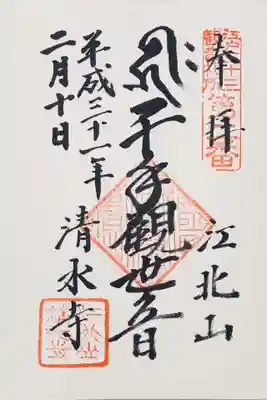 奉拝
江北山
千手觀世音
平成三十一年
清水寺
二月十日